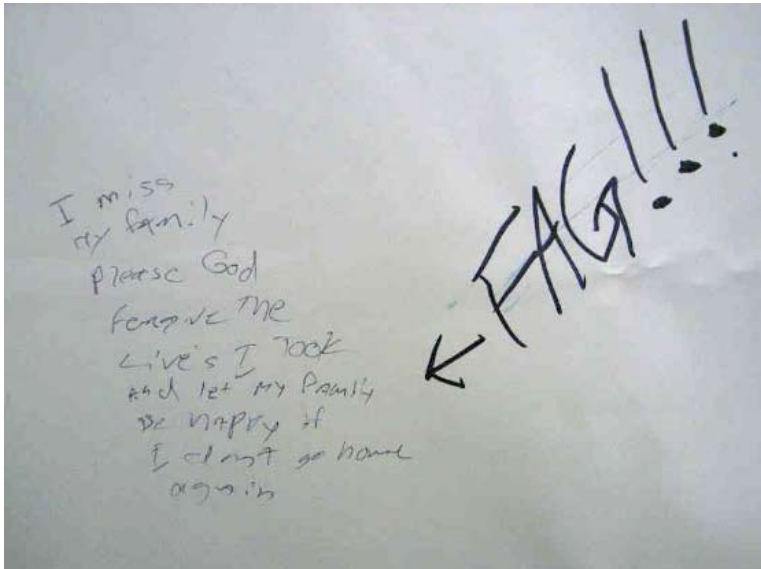 I miss
my family
please God
forgive the
Live's I Took
and let my family
be happy if
I don't go home
again
FAG!!!